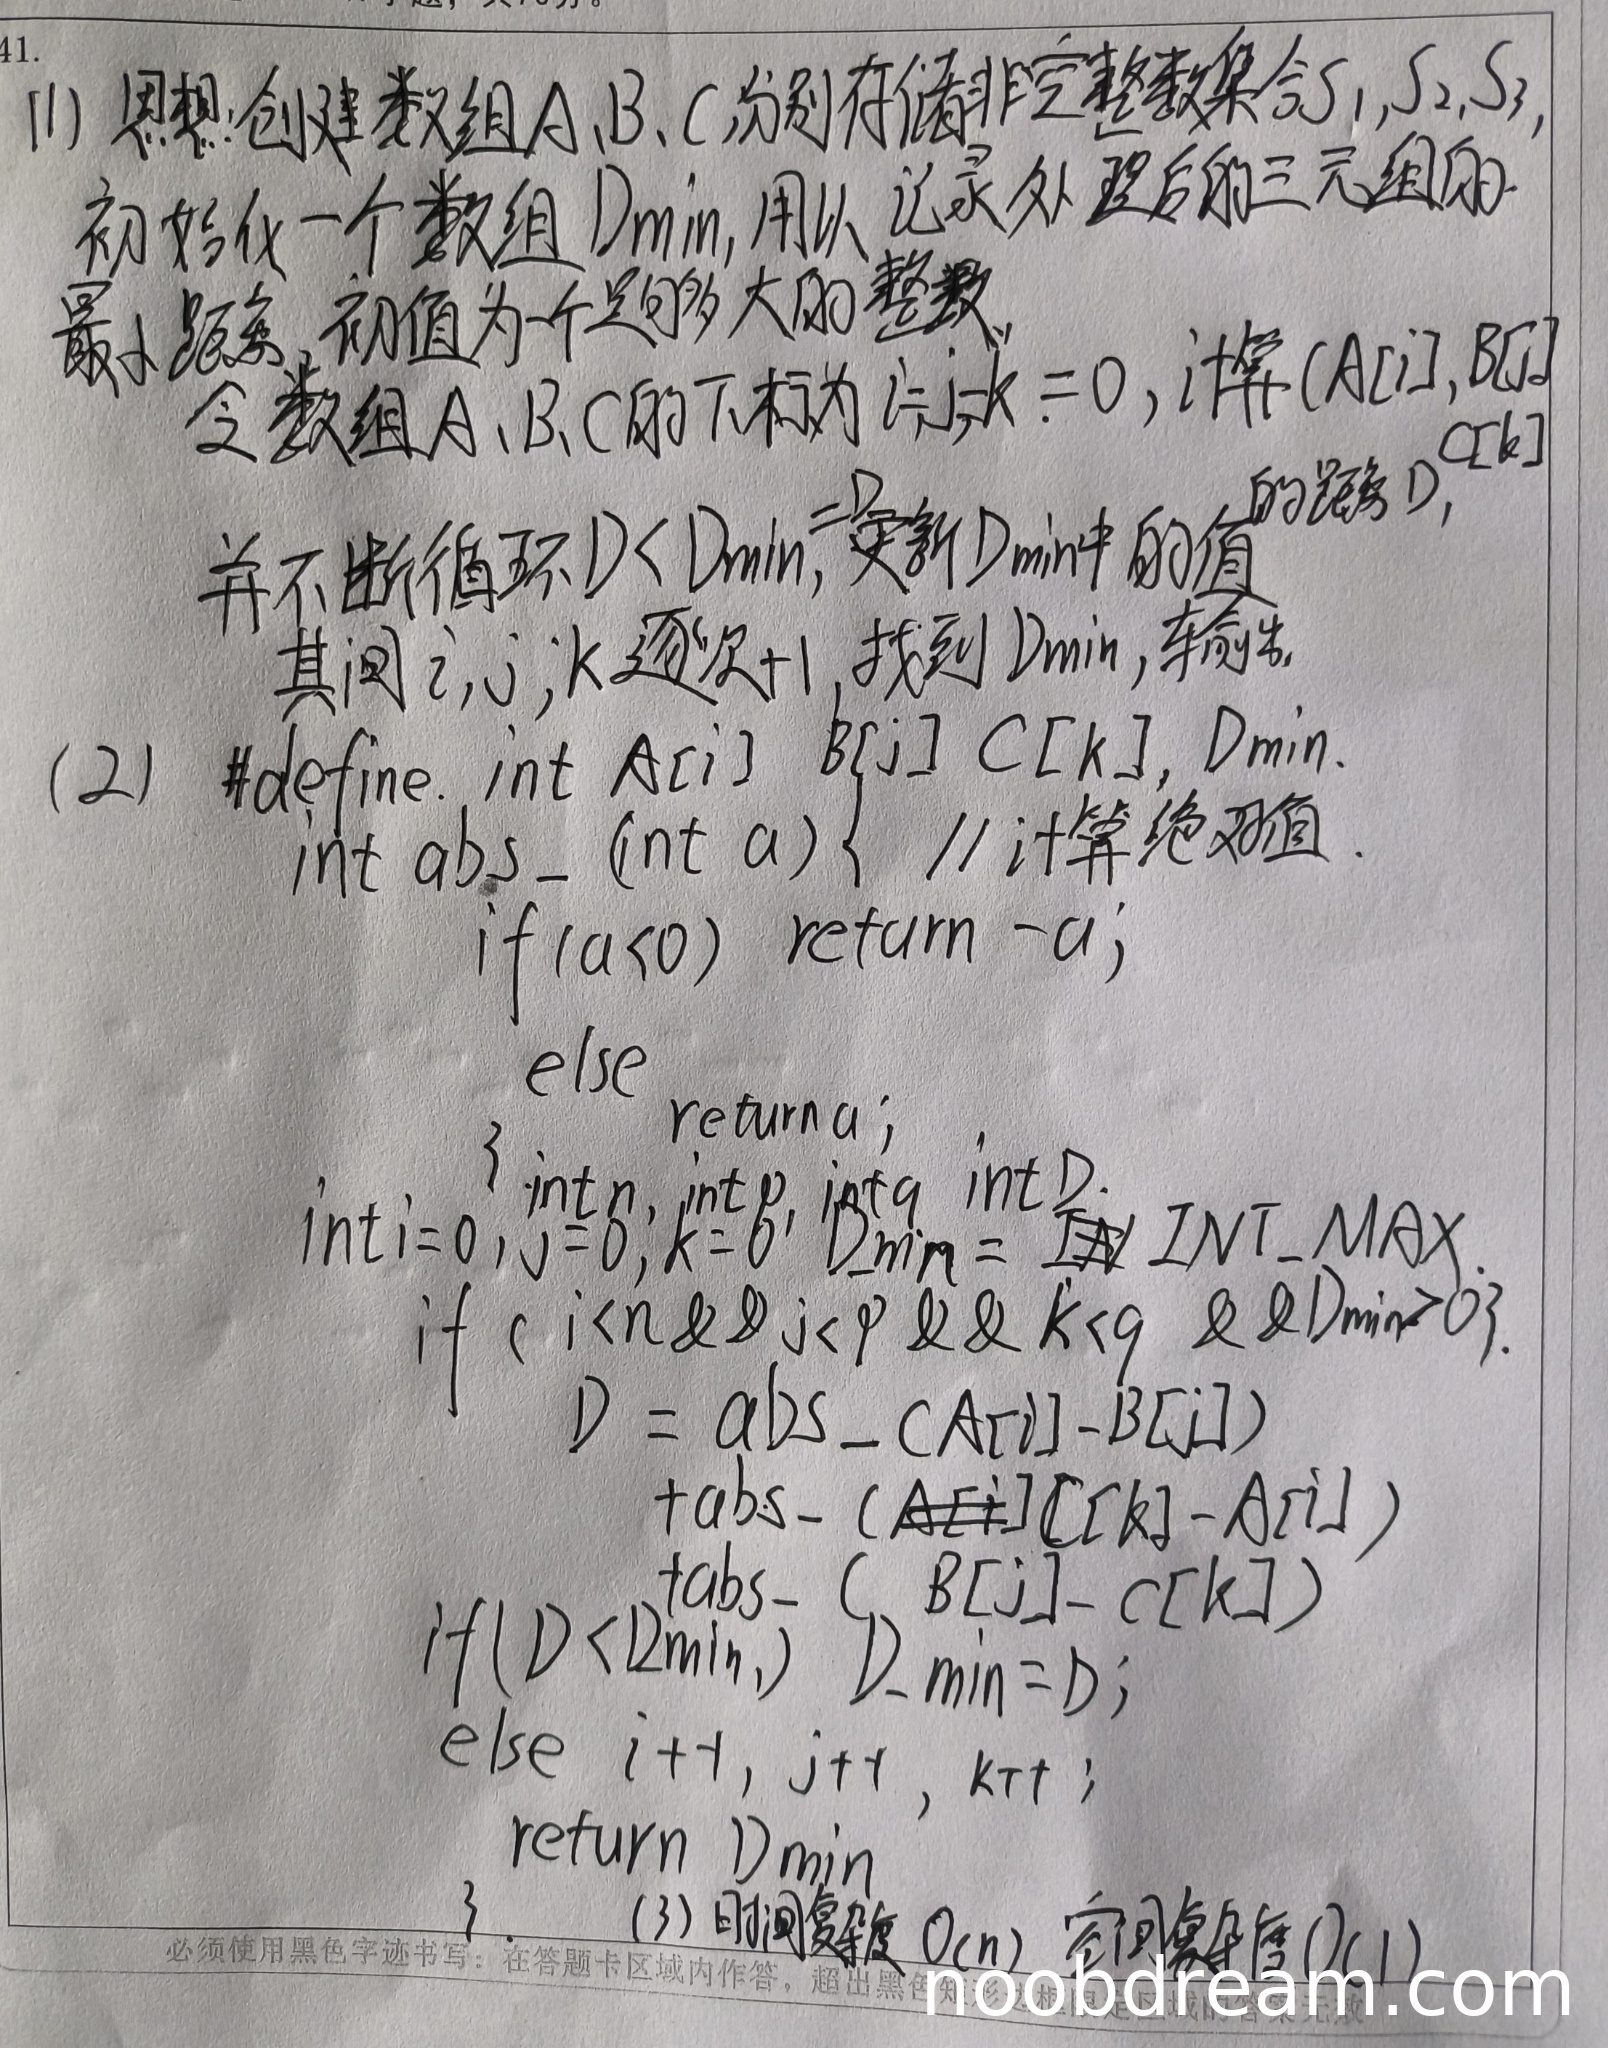 41.
(1) 思想:创建数组A、B、C,分别存储非空整数集合S1,S2,S3,
初始化一个数组Dmin,用以记录处理后的三元组的
最小距离,初值为一个足够大的整数。
令数组A、B、C的下标为i=j=k=0,计算(A[i],B[j]
C[k]
的距离D,
并不断循环D<Dmin,=D更新Dmin中的值
其间i,j,k逐次+1,找到Dmin,输出.
(2) #define. int A[i] B[j] C[k], Dmin.
int abs_ (int a) { //计算绝对值.
if(a<0) return -a;
else
return a;
} int n, int p, int q int D.
int i=0, j=0, k=0, D_min = INT_MAX.
if ( i<n && j<p && k<q && Dmin>0}.
D = abs_(A[i]-B[j])
+abs_(C[k]-A[i])
+abs_( B[j]-C[k])
if(D<Dmin,) D_min=D;
else i++, j++, k++;
return Dmin
}. (3)时间复杂度O(n) 空间复杂度O(1)
必须使用黑色字迹书写:在答题卡区域内作答,超出黑色矩形边框限定区域的答案无效
noobdream.com